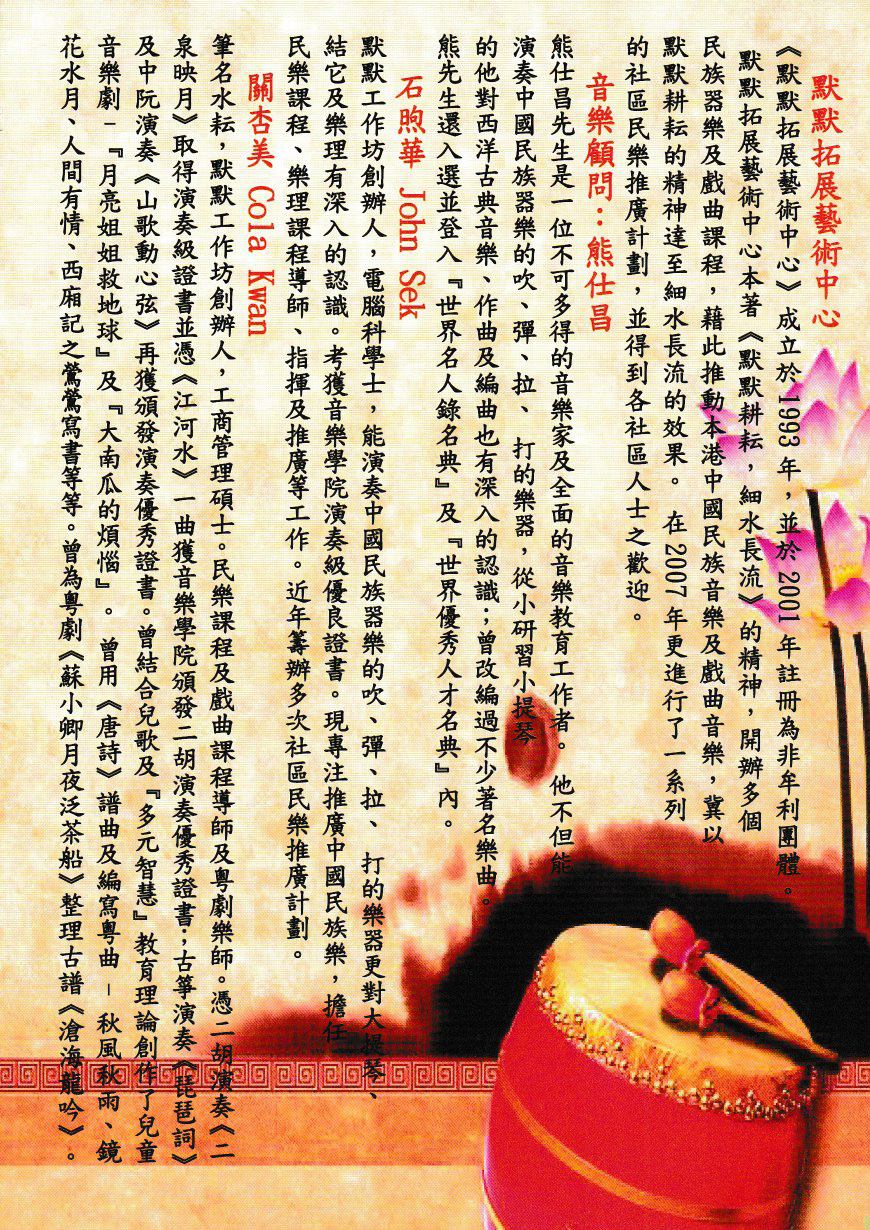 默默拓展藝術中心
《默默拓展藝術中心》成立於 1993 年，並於 2001 年註冊為非牟利團體。
默默拓展藝術中心本著《默默耕耘，細水長流》的精神，開辦多個
民族器樂及戲曲課程，藉此推動本港中國民族音樂及戲曲音樂，冀以
默默耕耘的精神達至細水長流的效果。在 2007 年更進行了一系列
的社區民樂推廣計劃，並得到各社區人士之歡迎。
音樂顧問：熊仕昌
熊仕昌先生是一位不可多得的音樂家及全面的音樂教育工作者。他不但能
演奏中國民族器樂的吹、彈、拉、打的樂器，從小研習小提琴
的他對西洋古典音樂、作曲及編曲也有深入的認識；曾改編過不少著名樂曲。
熊先生還入選並登入『世界名人錄名典』及『世界優秀人才名典』內。
石煦華 John Sek
默默工作坊創辦人，電腦科學士，能演奏中國民族器樂的吹、彈、拉、打的樂器更對大提琴、
結它及樂理有深入的認識。考獲音樂學院演奏級優良證書。現專注推廣中國民族樂，擔任
民樂課程、樂理課程導師、指揮及推廣等工作。近年籌辦多次社區民樂推廣計劃。
關杏美 Cola Kwan
筆名水耘，默默工作坊創辦人，工商管理碩士。民樂課程及戲曲課程導師及粵劇樂師。憑二胡演奏《二
泉映月》取得演奏級證書並憑《江河水》一曲獲音樂學院頒發二胡演奏優秀證書；古箏演奏《琵琶詞》
及中阮演奏《山歌動心弦》再獲頒發演奏優秀證書。曾結合兒歌及『多元智慧』教育理論創作了兒童
音樂劇－『月亮姐姐救地球』及『大南瓜的煩惱』。曾用《唐詩》譜曲及編寫粵曲－秋風秋雨、鏡
花水月、人間有情、西廂記之鶯鶯寫書等等。曾為粵劇《蘇小卿月夜泛茶船》整理古譜《滄海龍吟》。